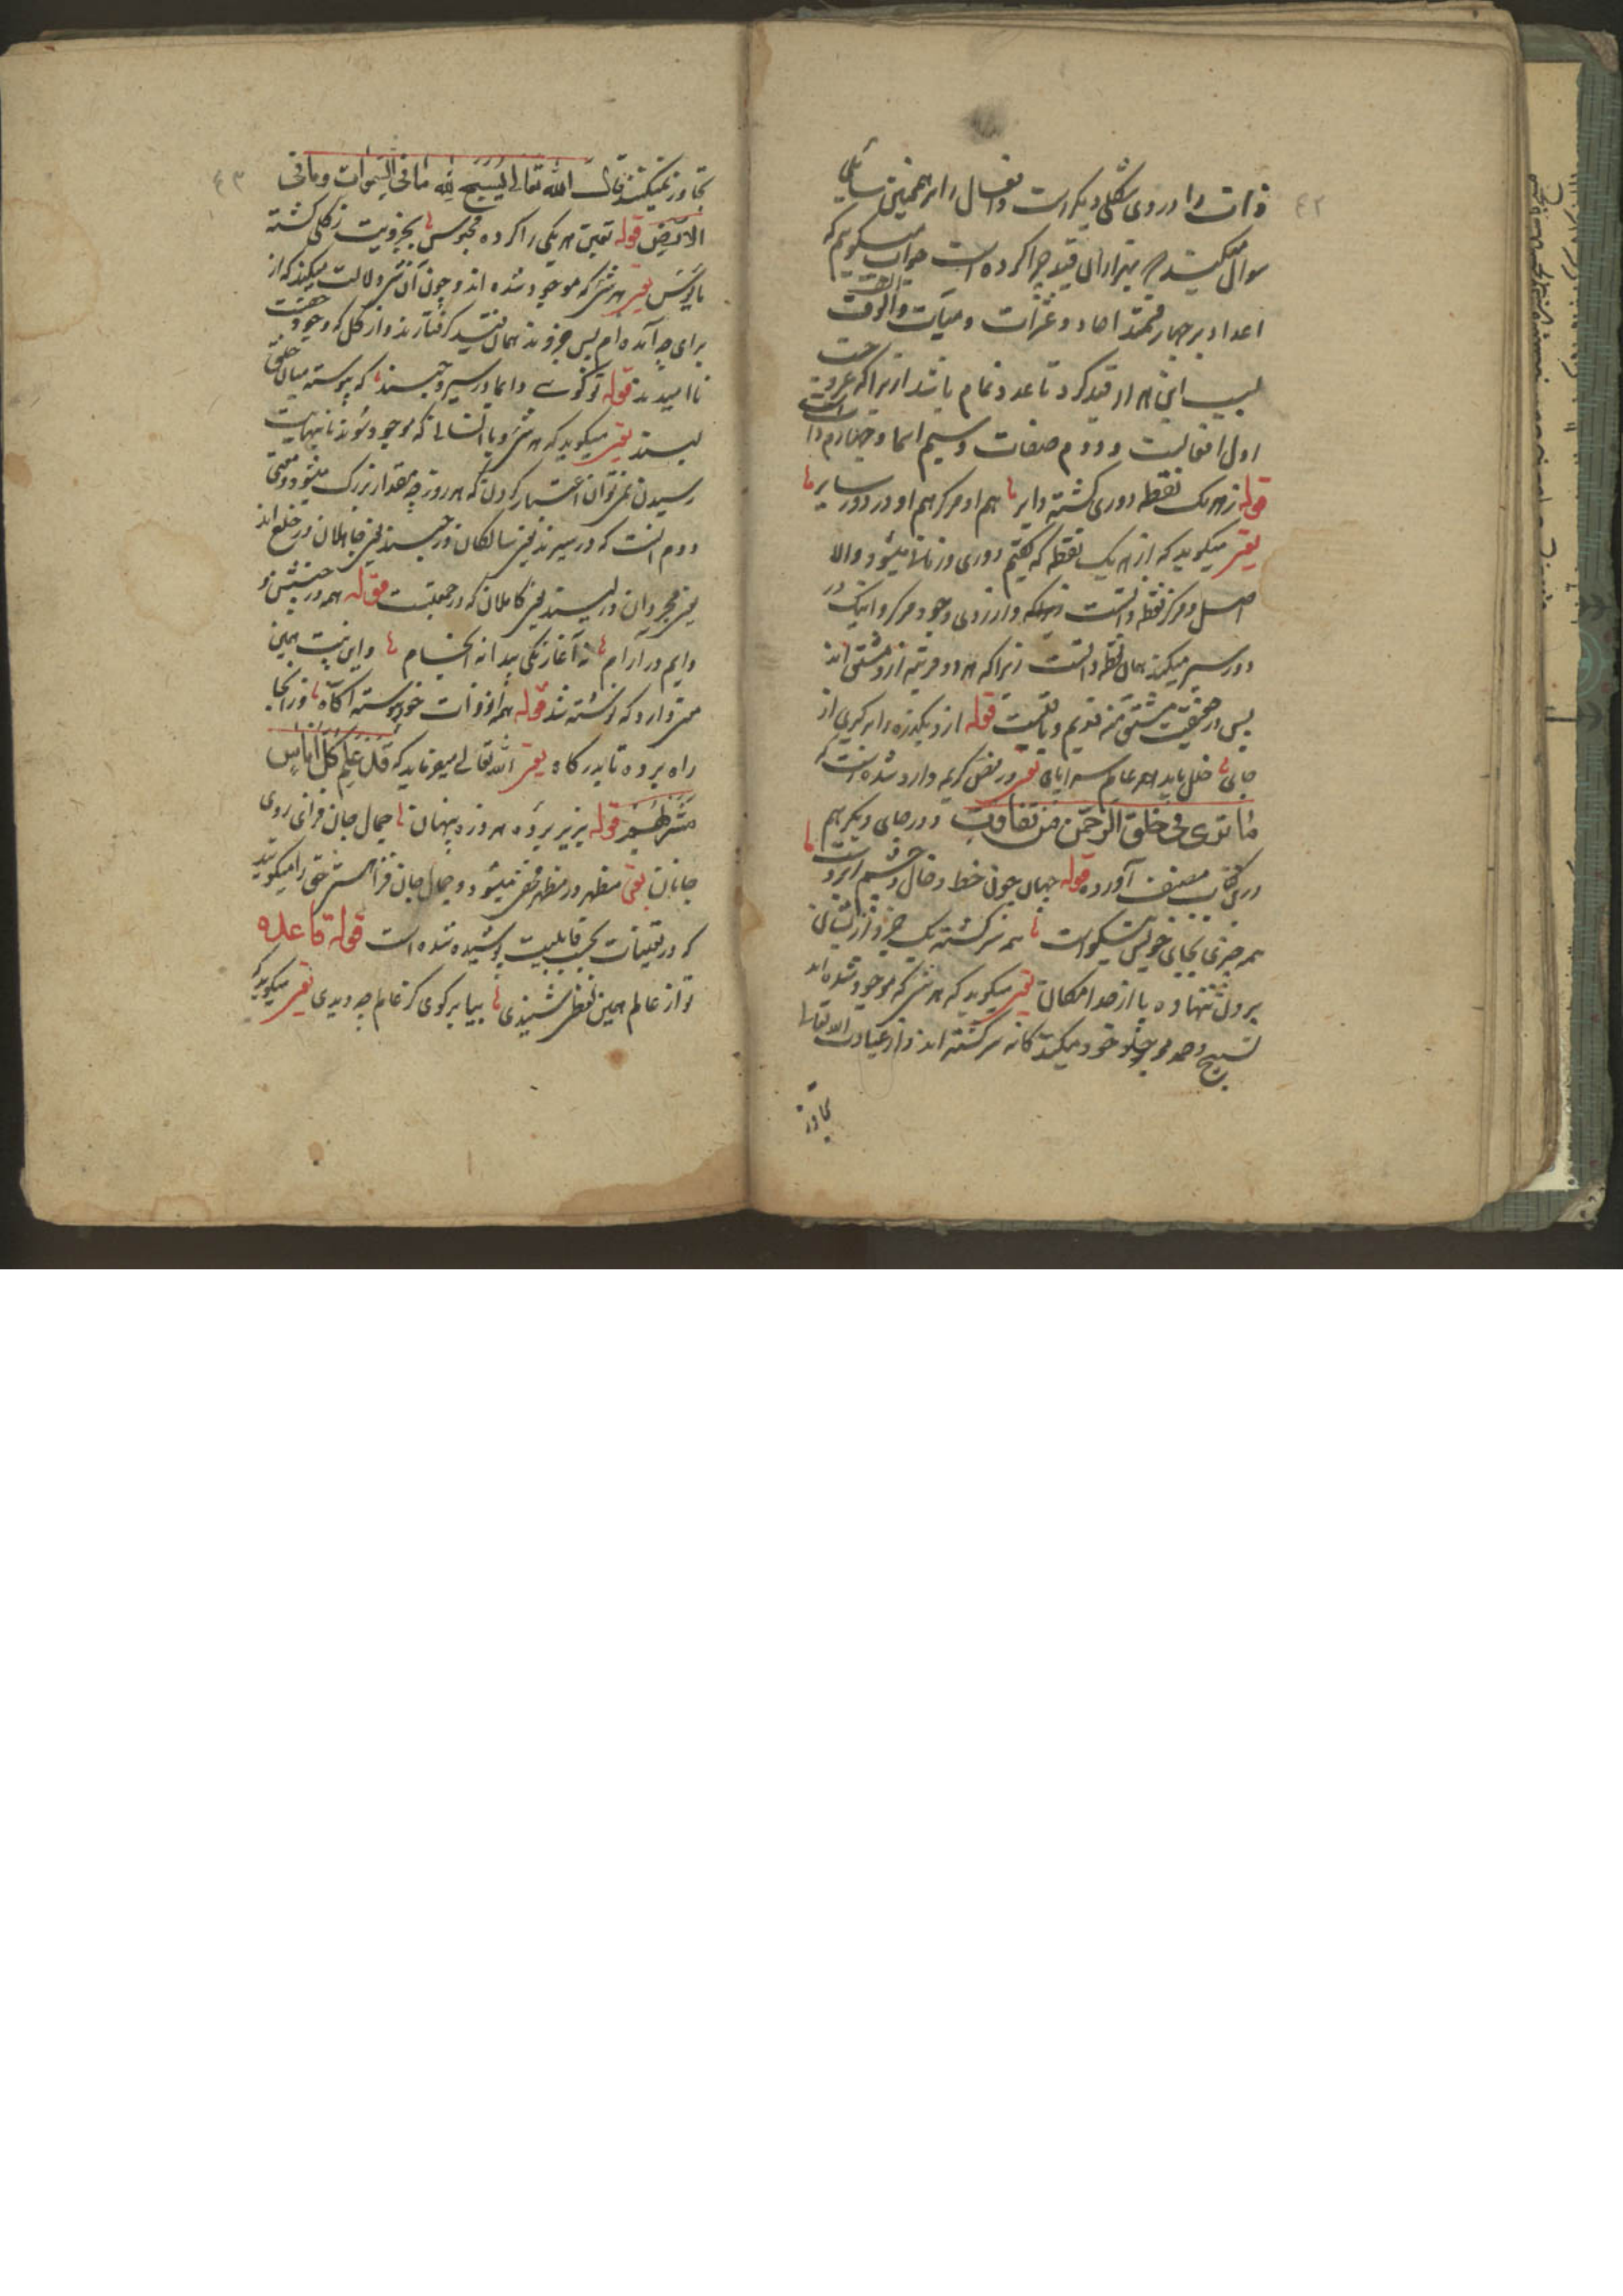 ٤٢
ذات را در وی شکلی دیکر است و افعال را هم همچنین سایلی
سوال میکند هزاران قید چرا کرده است جواب میکویم که
اعداد بر چهار قسمند احاد و عشرات و میآت و الوف
سبب این هزار قید کرد تا عدد تمام باشد از برا که
اول افعالست و دوم صفات و سیم اسما و چهارم ذات است
قوله ز هر یک نقطه دوری کشته دایر هم او مرکز هم او در دور سایر
یعنی میکوید که از هر یک نقطه که کفتیم دوری و زمانها میشود و الا
اصل و مرکز نقطه ذاتست از روی وجود مرکز و اینک در
دور سیر میکند همان نقطه ذاتست زیرا که هر دو مرتبه از و مشتق اند
پس در حقیقت مشتق منه قدیم و باقیست قوله اکر یکذره را برکیری از
جای خلل یابد همه عالم سراپای یعنی در نص کریم وارد شده است که
مَا تَرَى فِي خَلْقِ الرَّحْمٰنِ مِنْ تَفَاوُتٍ و در جای دیکر هم
در کتاب مصنف آورده قوله جهان چون خط و خال و چشم ابروست
همه چیزی بجای خویش نیکواست همه سرکشته یک جزو از ایشان
برون ننهاده پا از حد امکان یعنی میکوید که هر شی که موجود شده اند
تسبیح و حمد موجد خود میکنند کانه سرکشته اند و از عبادت الله تعالی
تجاوز
٤٣
تجاوز نمیکنند قال الله تعالى يُسَبِّحُ لِلّهِ مَا فِي السَّمٰوَات وَمَا فِي
الاَرْضِ قوله تعین هر یکی را کرده محبوس بجزویت ز کلی کشته
مایوس یعنی هر شی که موجود شده اند و چون آن شی دلالت میکند که از
برای چه آمده ام پس جزوند همان قید کرفتارند و از کل که وجود حقیقت
ناامیدند قوله تو کویی دایما در سیر و حبسند که پیوسته میان خلع
لبسند یعنی میکوید که هر شی و یا انسانی که موجود شوند تا بنهایت
رسیدن نمی توان اعتبار کردن که هر روز چه مقدار بزرک میشود و معنی
دوم آنست که در سیرند یعنی سالکان و در حبسند یعنی جاهلان و در خلع اند
یعنی مجردان و در لبسند یعنی کاملان که در جمعیتست قوله همه در جنبش و
دایم در آرام نه آغاز یکی پیدا نه انجام و این بیت همین
معنی دارد که نوشته شد قوله همه از ذات خود پیوسته آکاه وز آنجا
راه برده تا بدرکاه یعنی الله تعالی میفرماید که قَدْ عَلِمَ كُلُّ اُنَاسٍ
مَشْرَبَهُمْ قوله بزیر پرده هر ذره پنهان جمال جان فزای روی
جانان یعنی مظهر در مظهر مخفی میشود و جمال جان فزا هستی حق را میکویند
که در تعینات بحسب قابلیت پوشیده شده است قوله قاعده
تو از عالم همین لفظی شنیدی بیا برکوی کز عالم چه دیدی یعنی میکوید که